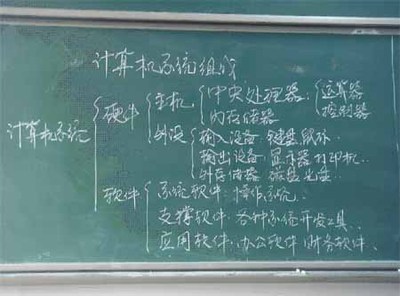 计算机系统组成
计算机系统
硬件 主机 中央处理器 运算器
控制器
内存储器
外设 输入设备:键盘鼠标
输出设备:显示器打印机..
外存储器 磁盘光盘..
软件 系统软件:操作系统.
支撑软件:各种系统开发工具..
应用软件:办公软件 财务软件..